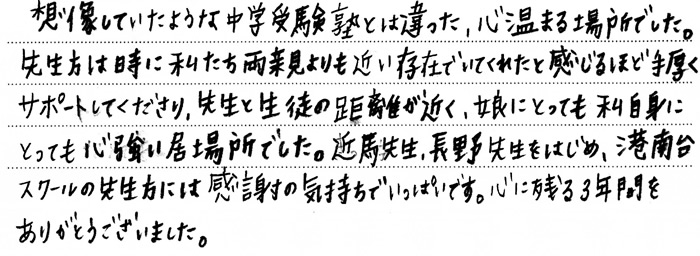 想像していたような中学受験塾とは違った、心温まる場所でした。
先生方は時に私たち両親よりも近い存在でいてくれたと感じるほど手厚く
サポートしてくださり、先生と生徒の距離が近く、娘にとっても私自身に
とっても心強い居場所でした。近馬先生、長野先生をはじめ、港南台
スクールの先生方には感謝の気持ちでいっぱいです。心に残る3年間を
ありがとうございました。